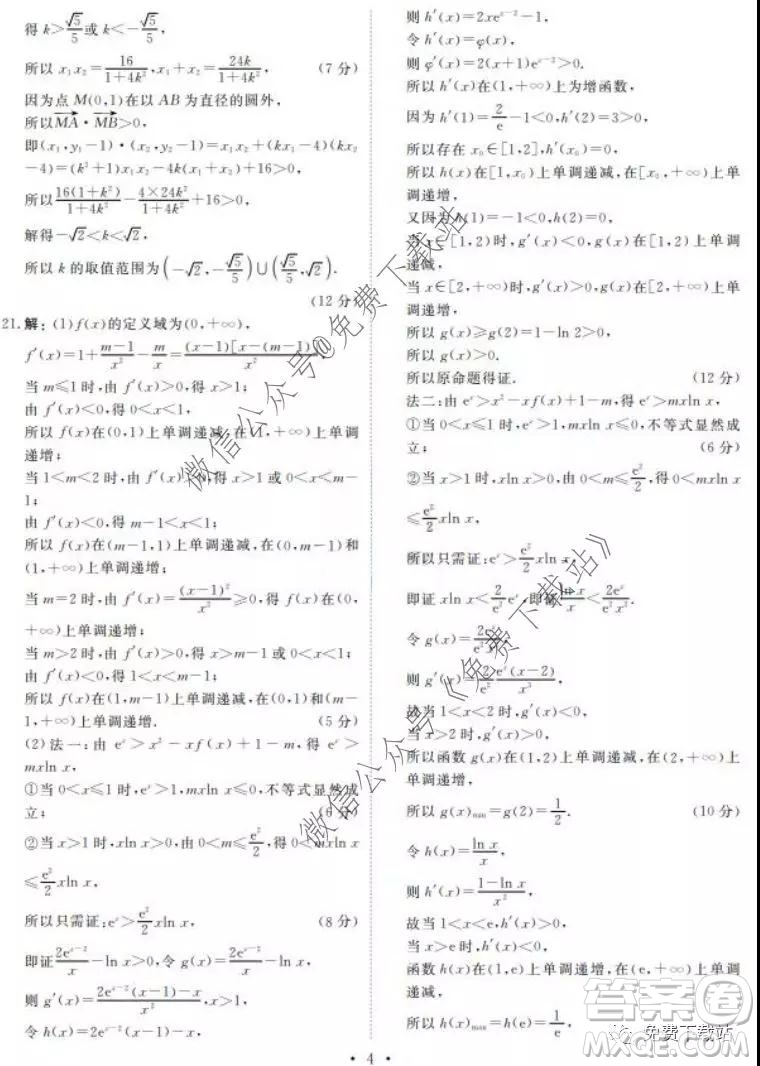 得 k>√5/5 或 k<-√5/5,
所以 x₁x₂=16/(1+4k²),x₁+x₂=24k/(1+4k²), (7 分)
因为点 M(0,1)在以 AB 为直径的圆外,
所以MA·MB>0,
即(x₁,y₁-1)·(x₂,y₂-1)=x₁x₂+(kx₁-4)(kx₂
-4)=(k²+1)x₁x₂-4k(x₁+x₂)+16>0,
所以 16(1+k²)/(1+4k²)-4×24k²/(1+4k²)+16>0,
解得-√2<k<√2,
所以 k 的取值范围为(-√2,-√5/5)∪(√5/5,√2).
(12 分)
21.解:(1)f(x)的定义域为(0,+∞),
f′(x)=1+(m-1)/x²-m/x=(x-1)[x-(m-1)]/x²,
当 m≤1 时,由 f′(x)>0,得 x>1;
由 f′(x)<0,得 0<x<1.
所以 f(x)在(0,1)上单调递减,在(1,+∞)上单调
递增;
当 1<m<2 时,由 f′(x)>0,得 x>1 或 0<x<m-
1;
由 f′(x)<0,得 m-1<x<1;
所以 f(x)在(m-1,1)上单调递减,在(0,m-1)和
(1,+∞)上单调递增;
当 m=2 时,由 f′(x)=(x-1)²/x²≥0,得 f(x)在(0,
+∞)上单调递增;
当 m>2 时,由 f′(x)>0,得 x>m-1 或 0<x<1;
由 f′(x)<0,得 1<x<m-1;
所以 f(x)在(1,m-1)上单调递减,在(0,1)和(m-
1,+∞)上单调递增. (5 分)
(2)法一:由 eˣ>x²-xf(x)+1-m,得 eˣ>
mxln x,
①当 0<x≤1 时,eˣ>1,mxln x≤0,不等式显然成
立; (6 分)
②当 x>1 时,xln x>0,由 0<m≤e²/2,得 0<mxln x
≤e²/2 xln x,
所以只需证:eˣ>e²/2 xln x, (8 分)
即证 2eˣ⁻²/x-ln x>0,令 g(x)=2eˣ⁻²/x-ln x,
则 g′(x)=[2eˣ⁻²(x-1)-x]/x²,x>1,
令 h(x)=2eˣ⁻²(x-1)-x,
则 h′(x)=2xeˣ⁻²-1,
令 h′(x)=φ(x),
则 φ′(x)=2(x+1)eˣ⁻²>0.
所以 h′(x)在(1,+∞)上为增函数,
因为 h′(1)=2/e-1<0,h′(2)=3>0,
所以存在 x₀∈[1,2],h′(x₀)=0,
所以 h(x)在[1,x₀)上单调递减,在[x₀,+∞)上单
调递增,
又因为 h(1)=-1<0,h(2)=0,
当 x∈[1,2)时,g′(x)<0,g(x)在[1,2)上单调
递减,
当 x∈[2,+∞)时,g′(x)>0,g(x)在[2,+∞)上单
调递增,
所以 g(x)≥g(2)=1-ln 2>0,
所以 g(x)>0.
所以原命题得证. (12 分)
法二:由 eˣ>x²-xf(x)+1-m,得 eˣ>mxln x,
①当 0<x≤1 时,eˣ>1,mxln x≤0,不等式显然成
立; (6 分)
②当 x>1 时,xln x>0,由 0<m≤e²/2,得 0<mxln x
≤e²/2 xln x,
所以只需证:eˣ>e²/2 xln x,
即证 xln x<2/e² eˣ,即证 ln x/x<2eˣ/(e²x²).
令 g(x)=2eˣ/(e²x²),
则 g′(x)=2/e²·eˣ(x-2)/x³,
故当 1<x<2 时,g′(x)<0;
当 x>2 时,g′(x)>0,
所以函数 g(x)在(1,2)上单调递减,在(2,+∞)上
单调递增,
所以 g(x)min=g(2)=1/2. (10 分)
令 h(x)=ln x/x,
则 h′(x)=(1-ln x)/x²,
故当 1<x<e 时,h′(x)>0;
当 x>e 时,h′(x)<0,
函数 h(x)在(1,e)上单调递增,在(e,+∞)上单调
递减,
所以 h(x)max=h(e)=1/e,
· 4 ·
微信公众号@免费下载站
微信公众号《免费下载站》
答案圈
免费下载站